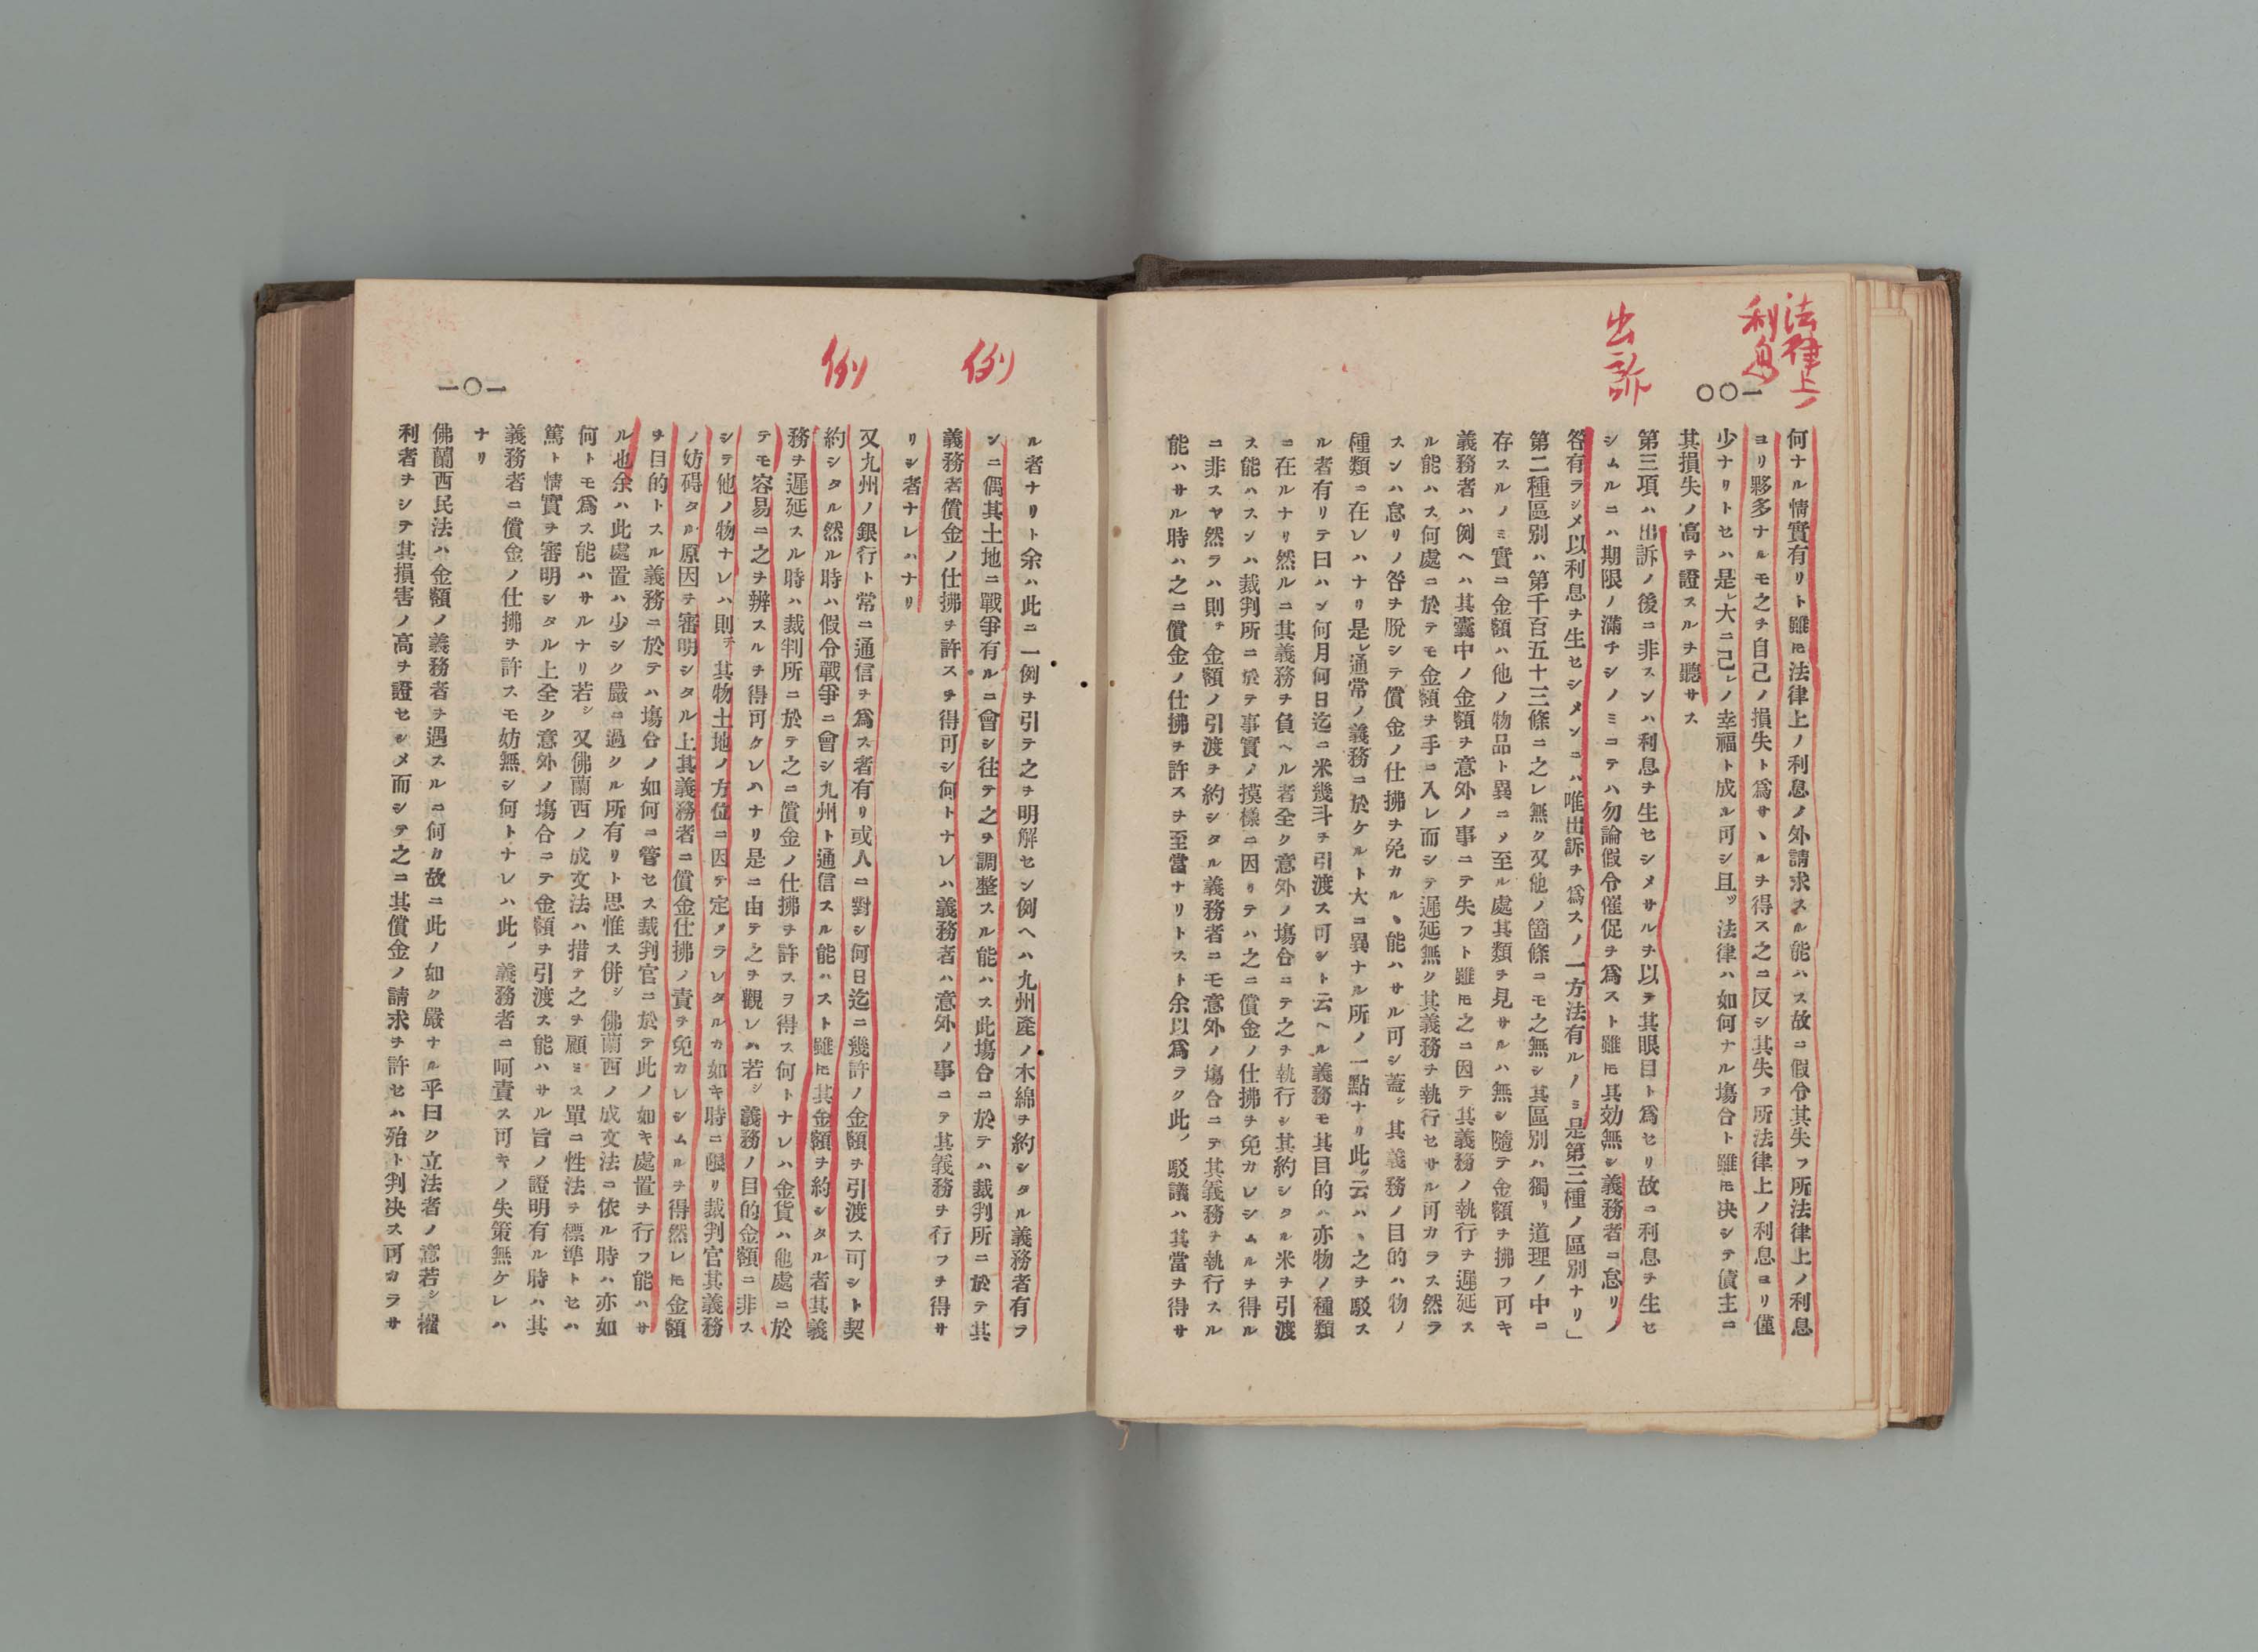 法律上ノ
利息
出訴
一〇〇
何ナル情實有リト雖𪜈法律上ノ利息ノ外請求スル能ハス故ニ假令其失フ所法律上ノ利息
ヨリ夥多ナルモ之ヲ自己ノ損失ト爲サヽルヲ得ス之ニ反シ其失フ所法律上ノ利息ヨリ僅
少ナリトセハ是レ大ニ己レノ幸福ト成ル可シ且ツ法律ハ如何ナル塲合ト雖𪜈决シテ債主ニ
其損失ノ高ヲ證スルヲ聽サス
第三項ハ出訴ノ後ニ非スンハ利息ヲ生セシメサルヲ以テ其眼目ト爲セリ故ニ利息ヲ生セ
シムルニハ期限ノ滿チシノミニテハ勿論假令催促ヲ爲スト雖𪜈其効無シ義務者ニ怠リノ
咎有ラシメ以利息ヲ生セシメンニハ唯出訴ヲ爲スノ一方法有ルノミ是第三種ノ區別ナリ」
第二種區別ハ第千百五十三條ニ之レ無ク又他ノ箇條ニモ之無シ其區別ハ獨リ道理ノ中ニ
存スルノミ實ニ金額ハ他ノ物品ト異ニメ至ル處其類ヲ見サルハ無シ隨テ金額ヲ拂フ可キ
義務者ハ例ヘハ其囊中ノ金額ヲ意外ノ事ニテ失フト雖𪜈之ニ因テ其義務ノ執行ヲ遲延ス
ル能ハス何處ニ於テモ金額ヲ手ニ入レ而シテ遲延無ク其義務ヲ執行セサル可カラス然ラ
スンハ怠リノ咎ヲ脫シテ償金ノ仕拂ヲ免カルヽ能ハサル可シ蓋シ其義務ノ目的ハ物ノ
種類ニ在レハナリ是レ通常ノ義務ニ於ケルト大ニ異ナル所ノ一點ナリ此ク云ハヽ之ヲ駁ス
ル者有リテ曰ハン何月何日迄ニ米幾斗ヲ引渡ス可シト云ヘル義務モ其目的ハ亦物ノ種類
ニ在ルナリ然ルニ其義務ヲ負ヘル者全ク意外ノ塲合ニテ之ヲ執行シ其約シタル米ヲ引渡
ス能ハスンハ裁判所ニ於テ事實ノ摸樣ニ因リテハ之ニ償金ノ仕拂ヲ免カレシムルヲ得ル
ニ非スヤ然ラハ則チ金額ノ引渡ヲ約シタル義務者ニモ意外ノ塲合ニテ其義務ヲ執行スル
能ハサル時ハ之ニ償金ノ仕拂ヲ許スヲ至當ナリトスト余以爲ラク此ノ駁議ハ其當ヲ得サ
例
例
一〇一
ル者ナリト余ハ此ニ一例ヲ引テ之ヲ明解セン例ヘハ九州產ノ木綿ヲ約シタル義務者有ラ
ンニ偶其土地ニ戰爭有ルニ會シ往テ之ヲ調整スル能ハス此塲合ニ於テハ裁判所ニ於テ其
義務者償金ノ仕拂ヲ許スヲ得可シ何トナレハ義務者ハ意外ノ事ニテ其義務ヲ行フヲ得サ
リシ者ナレハナリ
又九州ノ銀行ト常ニ通信ヲ爲ス者有リ或人ニ對シ何日迄ニ幾許ノ金額ヲ引渡ス可シト契
約シタル然ル時ハ假令戰爭ニ會シ九州ト通信スル能ハスト雖𪜈其金額ヲ約シタル者其義
務ヲ遲延スル時ハ裁判所ニ於テ之ニ償金ノ仕拂ヲ許スヲ得ス何トナレハ金貨ハ他處ニ於
テモ容易ニ之ヲ辨スルヲ得可クレハナリ是ニ由テ之ヲ觀レハ若シ義務ノ目的金額ニ非ス
シテ他ノ物ナレハ則チ其物土地ノ方位ニ因テ定メラレタルカ如キ時ニ限リ裁判官其義務
ノ妨碍タル原因ヲ審明シタル上其義務者ニ償金仕拂ノ責ヲ免カレシムルヲ得然レ𪜈金額
ヲ目的トスル義務ニ於テハ塲合ノ如何ニ管セス裁判官ニ於テ此ノ如キ處置ヲ行フ能ハサ
ル也余ハ此處置ハ少シク嚴ニ過クル所有リト思惟ス併シ佛蘭西ノ成文法ニ依ル時ハ亦如
何トモ爲ス能ハサルナリ若シ又佛蘭西ノ成文法ハ措テ之ヲ顧ミス單ニ性法ヲ標準トセハ
篤ト情實ヲ審明シタル上全ク意外ノ塲合ニテ金額ヲ引渡ス能ハサル旨ノ證明有ル時ハ其
義務者ニ償金ノ仕拂ヲ許スモ妨無シ何トナレハ此ノ義務者ニ呵責ス可キノ失策無ケレハ
ナリ
佛蘭西民法ハ金額ノ義務者ヲ遇スルニ何カ故ニ此ノ如ク嚴ナル乎曰ク立法者ノ意若シ權
利者ヲシテ其損害ノ高ヲ證セシメ而シテ之ニ其償金ノ請求ヲ許セハ殆ト判决ス可カラサ